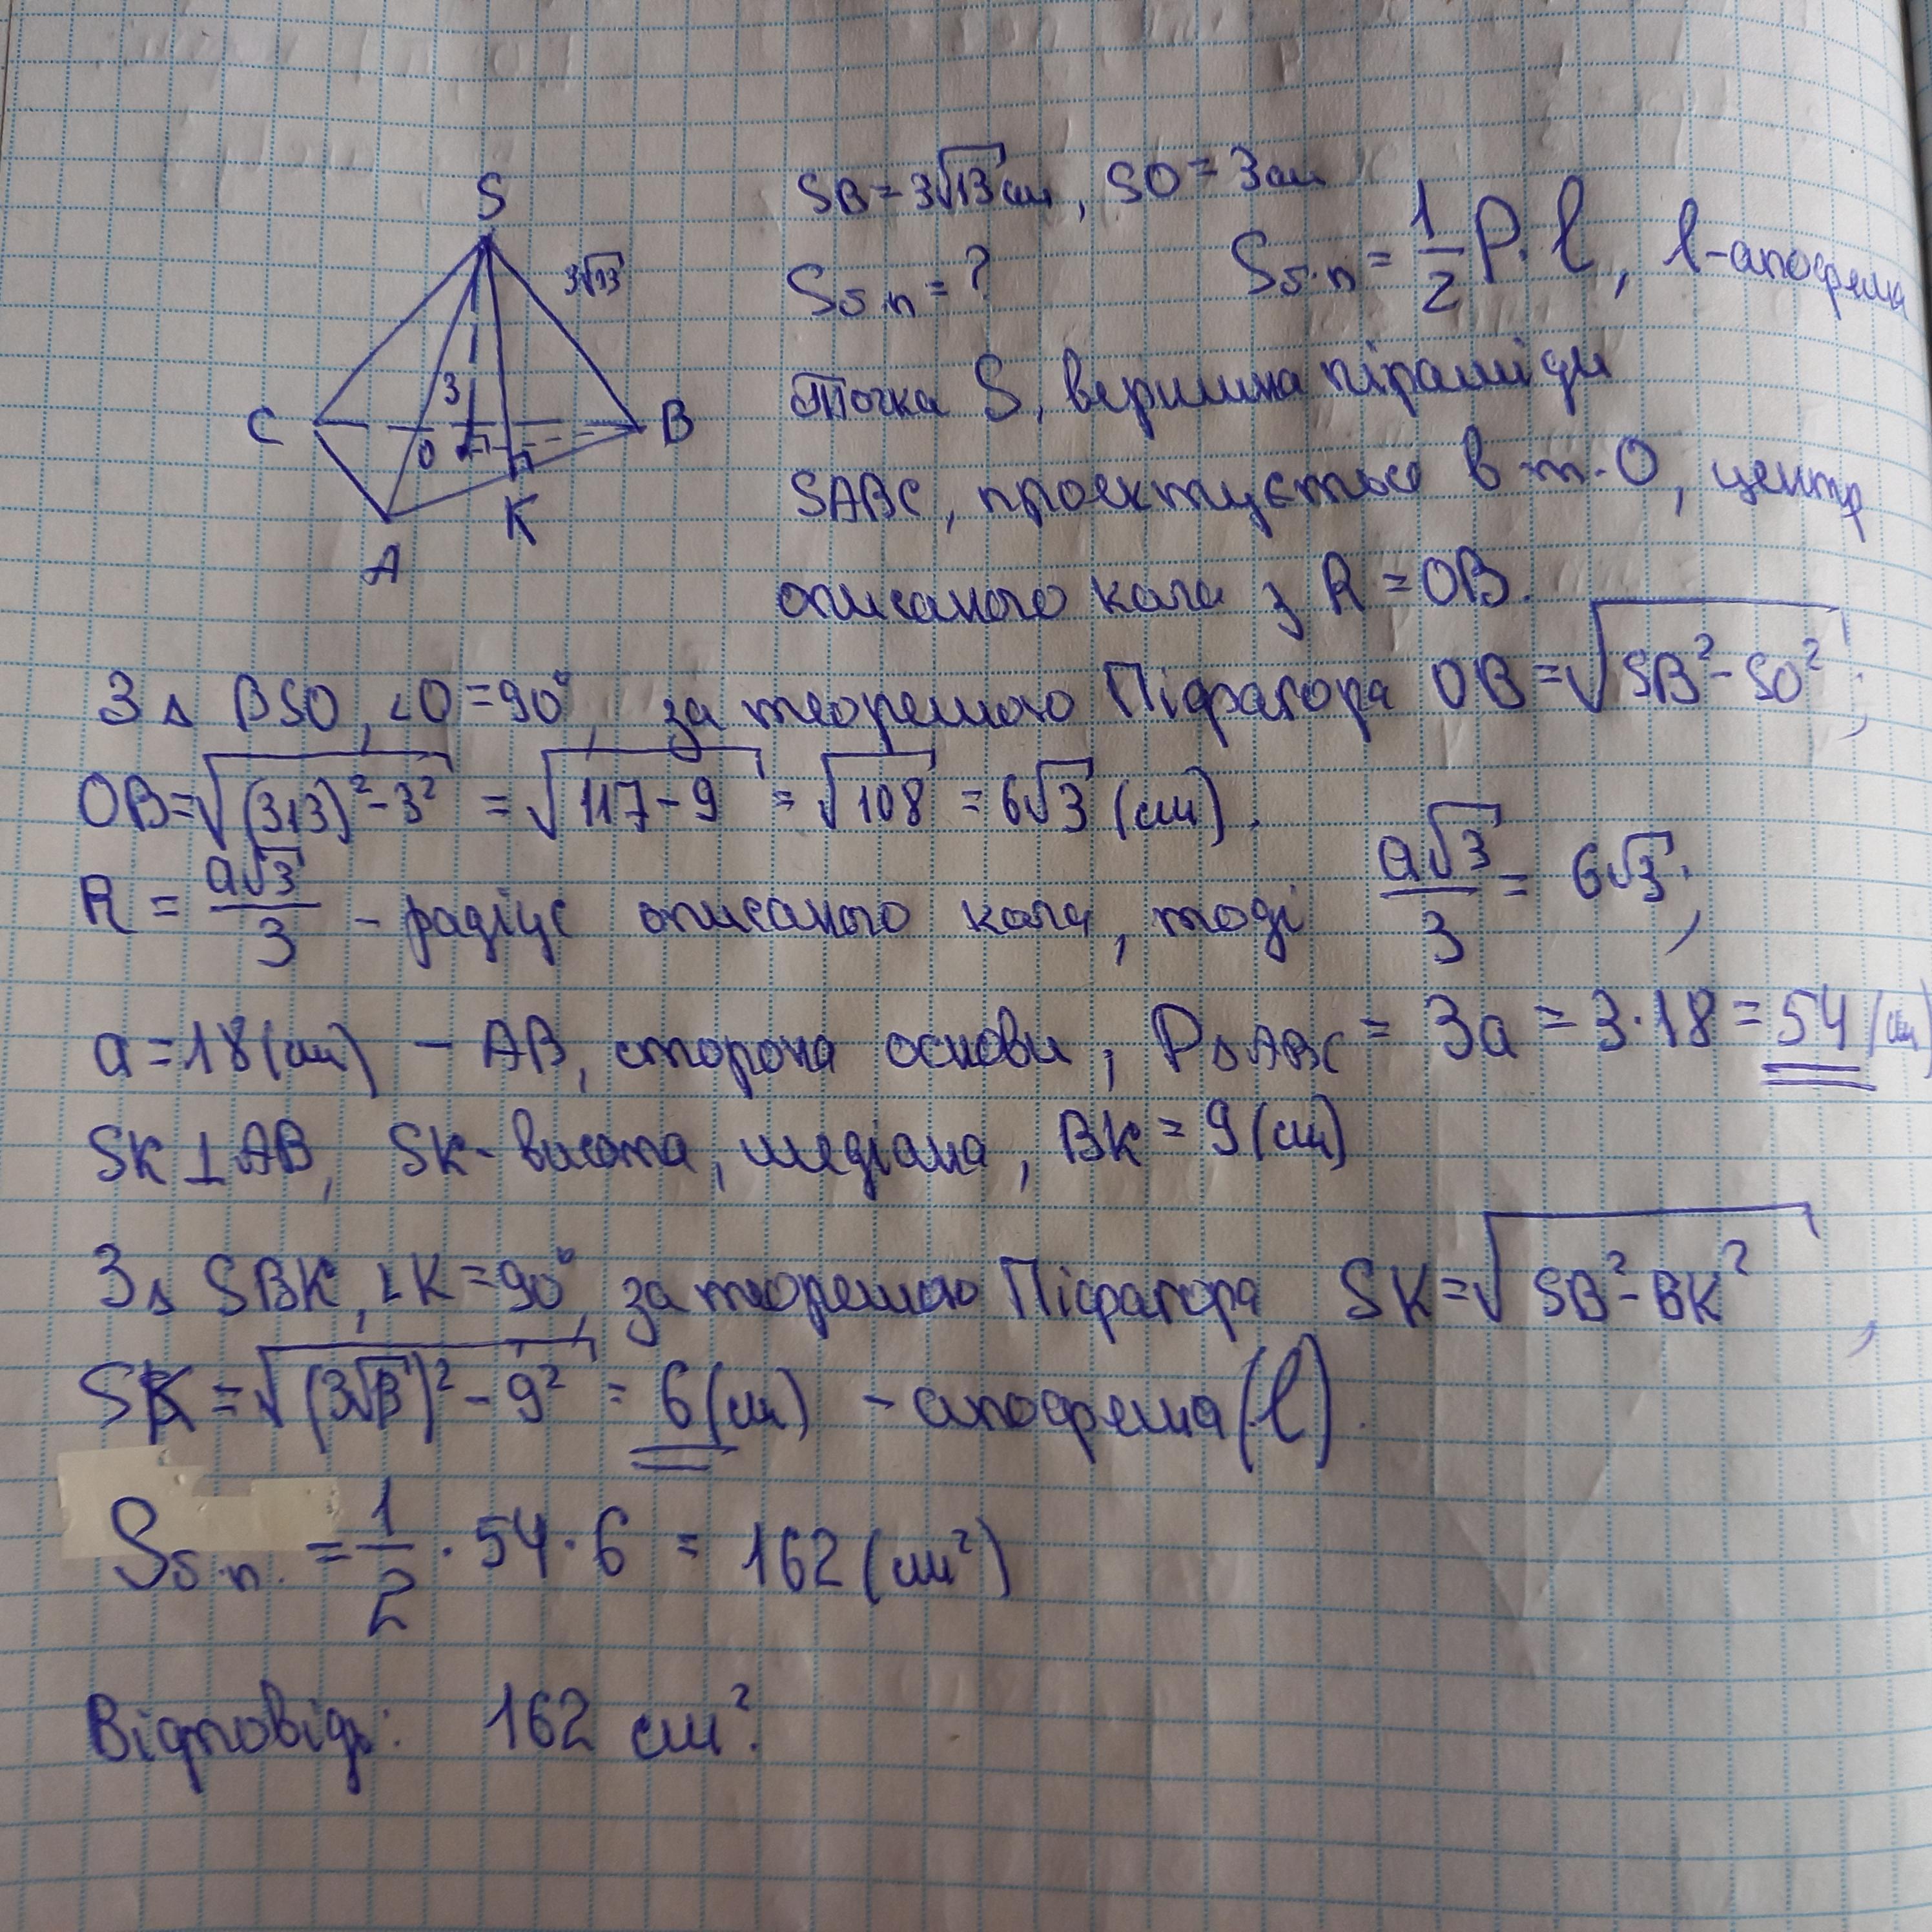 S
3√13
3
C
O
B
K
A
SB = 3√13 см, SO = 3 см
Sб.п = ? Sб.п = 1/2 P·l, l - апофема
Точка S, вершина піраміди
SABC, проектується в т. О, центр
описаного кола з R = OB.
З Δ BSO, ∠O = 90°, за теоремою Піфагора OB = √(SB² - SO²);
OB = √((3√13)² - 3²) = √(117 - 9) = √108 = 6√3 (см).
R = a√3/3 - радіус описаного кола, тоді a√3/3 = 6√3;
a = 18 (см) - AB, сторона основи, PΔABC = 3a = 3·18 = 54 (см)
SK ⊥ AB, SK - висота, медіана, BK = 9 (см)
З Δ SBK, ∠K = 90°, за теоремою Піфагора SK = √(SB² - BK²),
SK = √((3√13)² - 9²) = 6 (см) - апофема (l).
Sб.п. = 1/2 · 54 · 6 = 162 (см²)
Відповідь: 162 см².